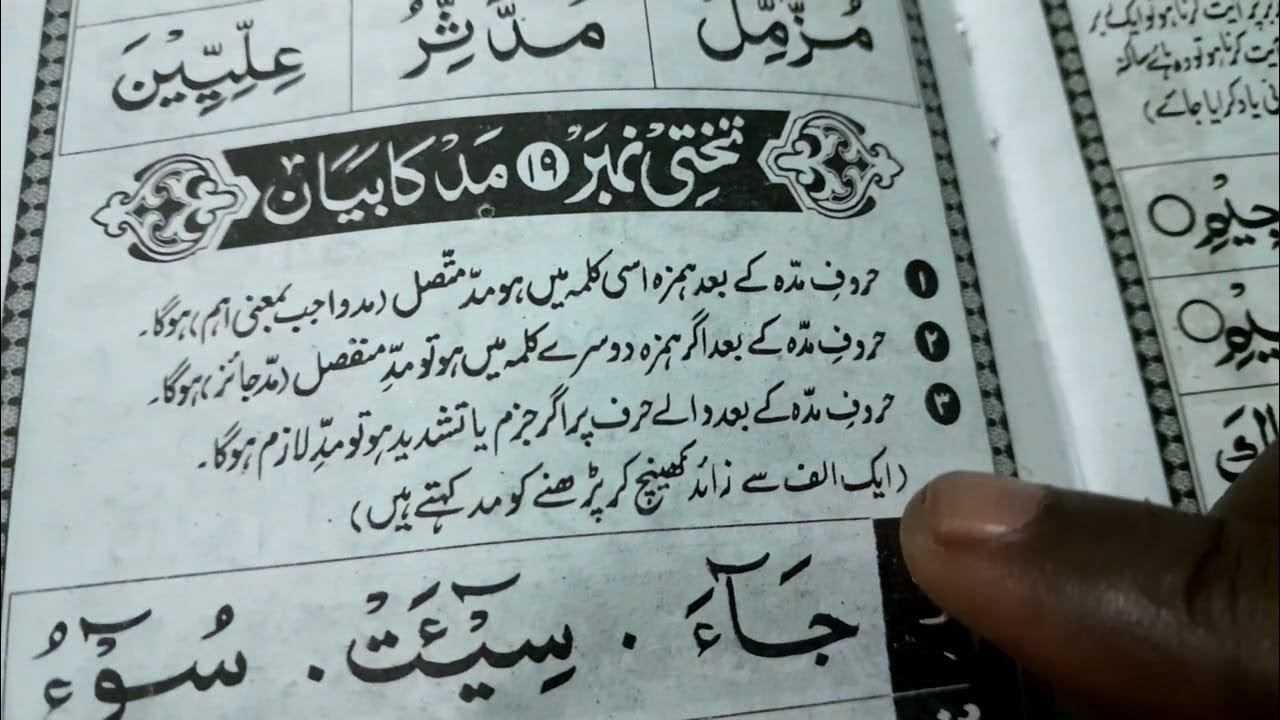 مُزَّمِّلُ مُدَّثِّرُ عِلِّيِّيْنَ
تختی نمبر ۱۹ مَد کا بَیَان
۱ حروفِ مدّہ کے بعد ہمزہ اسی کلمہ میں ہو مدِّ متّصل (مد واجب بمعنی اہم) ہوگا۔
۲ حروفِ مدّہ کے بعد اگر ہمزہ دوسرے کلمہ میں ہو تو مدِّ منفصل (مدّ جائز) ہوگا۔
۳ حروفِ مدّہ کے بعد والے حرف پر اگر جزم یا تشدید ہو تو مدِّ لازم ہوگا۔
(ایک الف سے زائد کھینچ کر پڑھنے کو مد کہتے ہیں)
جَآءَ ۔ سِيْٓئَتْ ۔ سُوْٓءُ
نی یاد کرایا جائے)